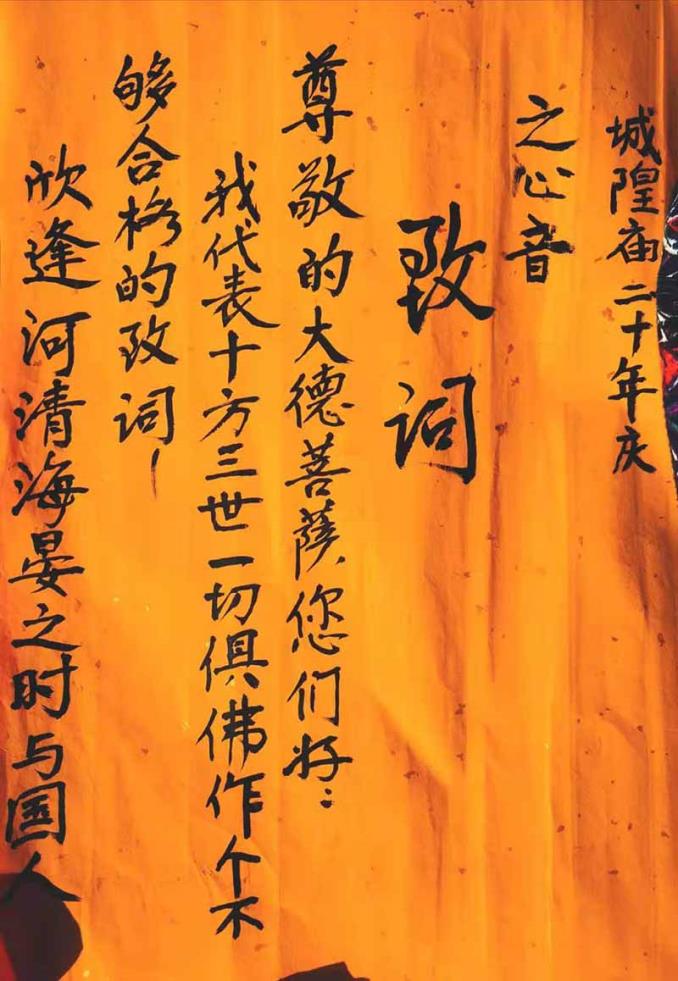 城隍庙二十年庆
之心音
致词
尊敬的大德菩萨您们好：
我代表十方三世一切俱佛作个不
够合格的致词！
欣逢河清海晏之时与国人